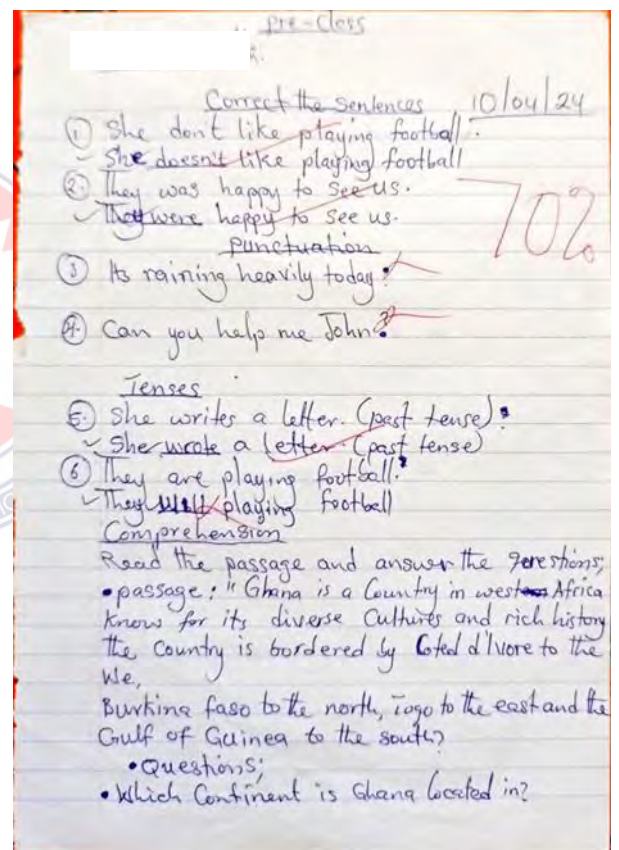 Pre-Class
Correct the Sentences 10/04/24
① She don't like playing football.
She doesn't like playing football
2. They was happy to see us.
They were happy to see us.
70%
Punctuation
③ Its raining heavily today
④ Can you help me John
Tenses
5. She writes a letter. (past tense)
She wrote a letter. (past tense)
⑥ They are playing football.
They playing football
Comprehension
Read the passage and answer the questions;
• passage: "Ghana is a Country in western Africa
Know for its diverse Cultures and rich history
the Country is bordered by Coted d'Ivore to the
We,
Burkina faso to the north, Togo to the east and the
Gulf of Guinea to the south?
• Questions;
• Which Continent is Ghana located in?